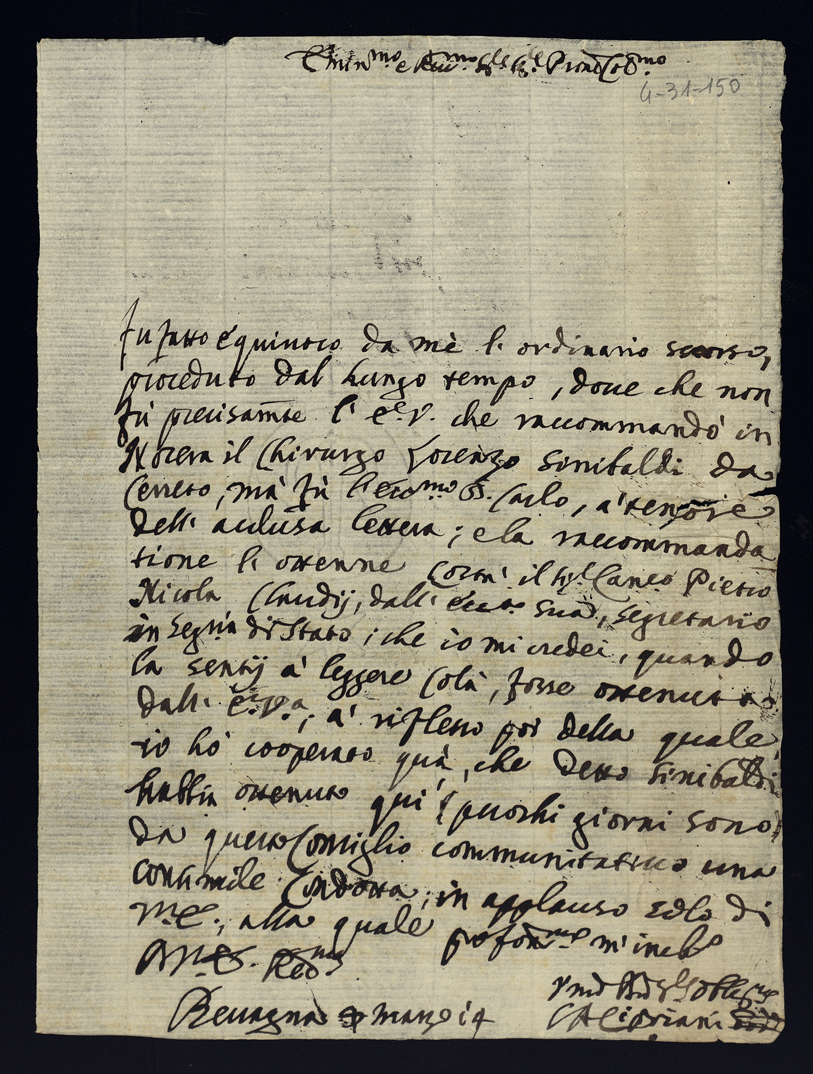 Emin.mo e Rev.mo Sig.re Sig.re Pron Col.mo
4-31-150
Fu fatto équiuoco da mè l'ordinario scorso,
proceduto dal lungo tempo, doue che non
fù precisam.te l'E.V. che raccommandò in
Nocera il Chirurgo Lorenzo Sinibaldi da
Cerreto, mà fù l'em.mo S. Carlo, a' tenore
dell'acclusa lettera; e la raccommanda
tione l'ottenne il Sig.r Canco Pietro
Nicola Claudij, dall' sua, segretario
in Segria di Stato; che io mi credei, quando
la sentij a' leggere colà, fosse ottenuta
dall' E.V.a; a' riflesso poi della quale
io hò cooperato quà, che detto Sinibaldi
habbia ottenuto quì (puochi giorni sono)
da questo Consiglio communitatiuo una
consimile Condotta, in applauso solo di
V.E., alla quale profon.me m'inch.o
Di V.E. Re.ma
Beuagna marzo 14
Cipriani